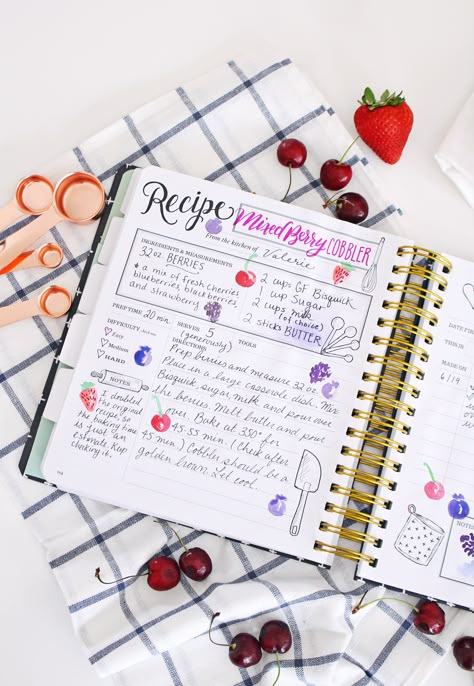 Recipe
Mixed Berry COBBLER
From the kitchen of Valerie
INGREDIENTS & MEASUREMENTS
32oz. BERRIES
* a mix of fresh cherries
blueberries, blackberries
and strawberry
2 cups GF Bisquick
1 cup Sugar
2 cups milk
(of choice)
2 sticks BUTTER
PREP TIME 20 min.
SERVES 5
(generously)
TOOLS
DIFFICULTY
Easy
Medium
HARD
DIRECTIONS
Prep berries and measure 32 oz
Place in a large casserole dish. Mix
Bisquick, sugar, milk and pour over
the berries. Melt butter and pour
over. Bake at 350° for
45-55 min. (Check after
45 min.) Cobbler should be a
golden brown. Let cool.
NOTES
I doubled
the original
recipe so
the baking time
is just an
estimate. Keep
checking it.
DATE
THIS
MADE ON
6/19
NOTES